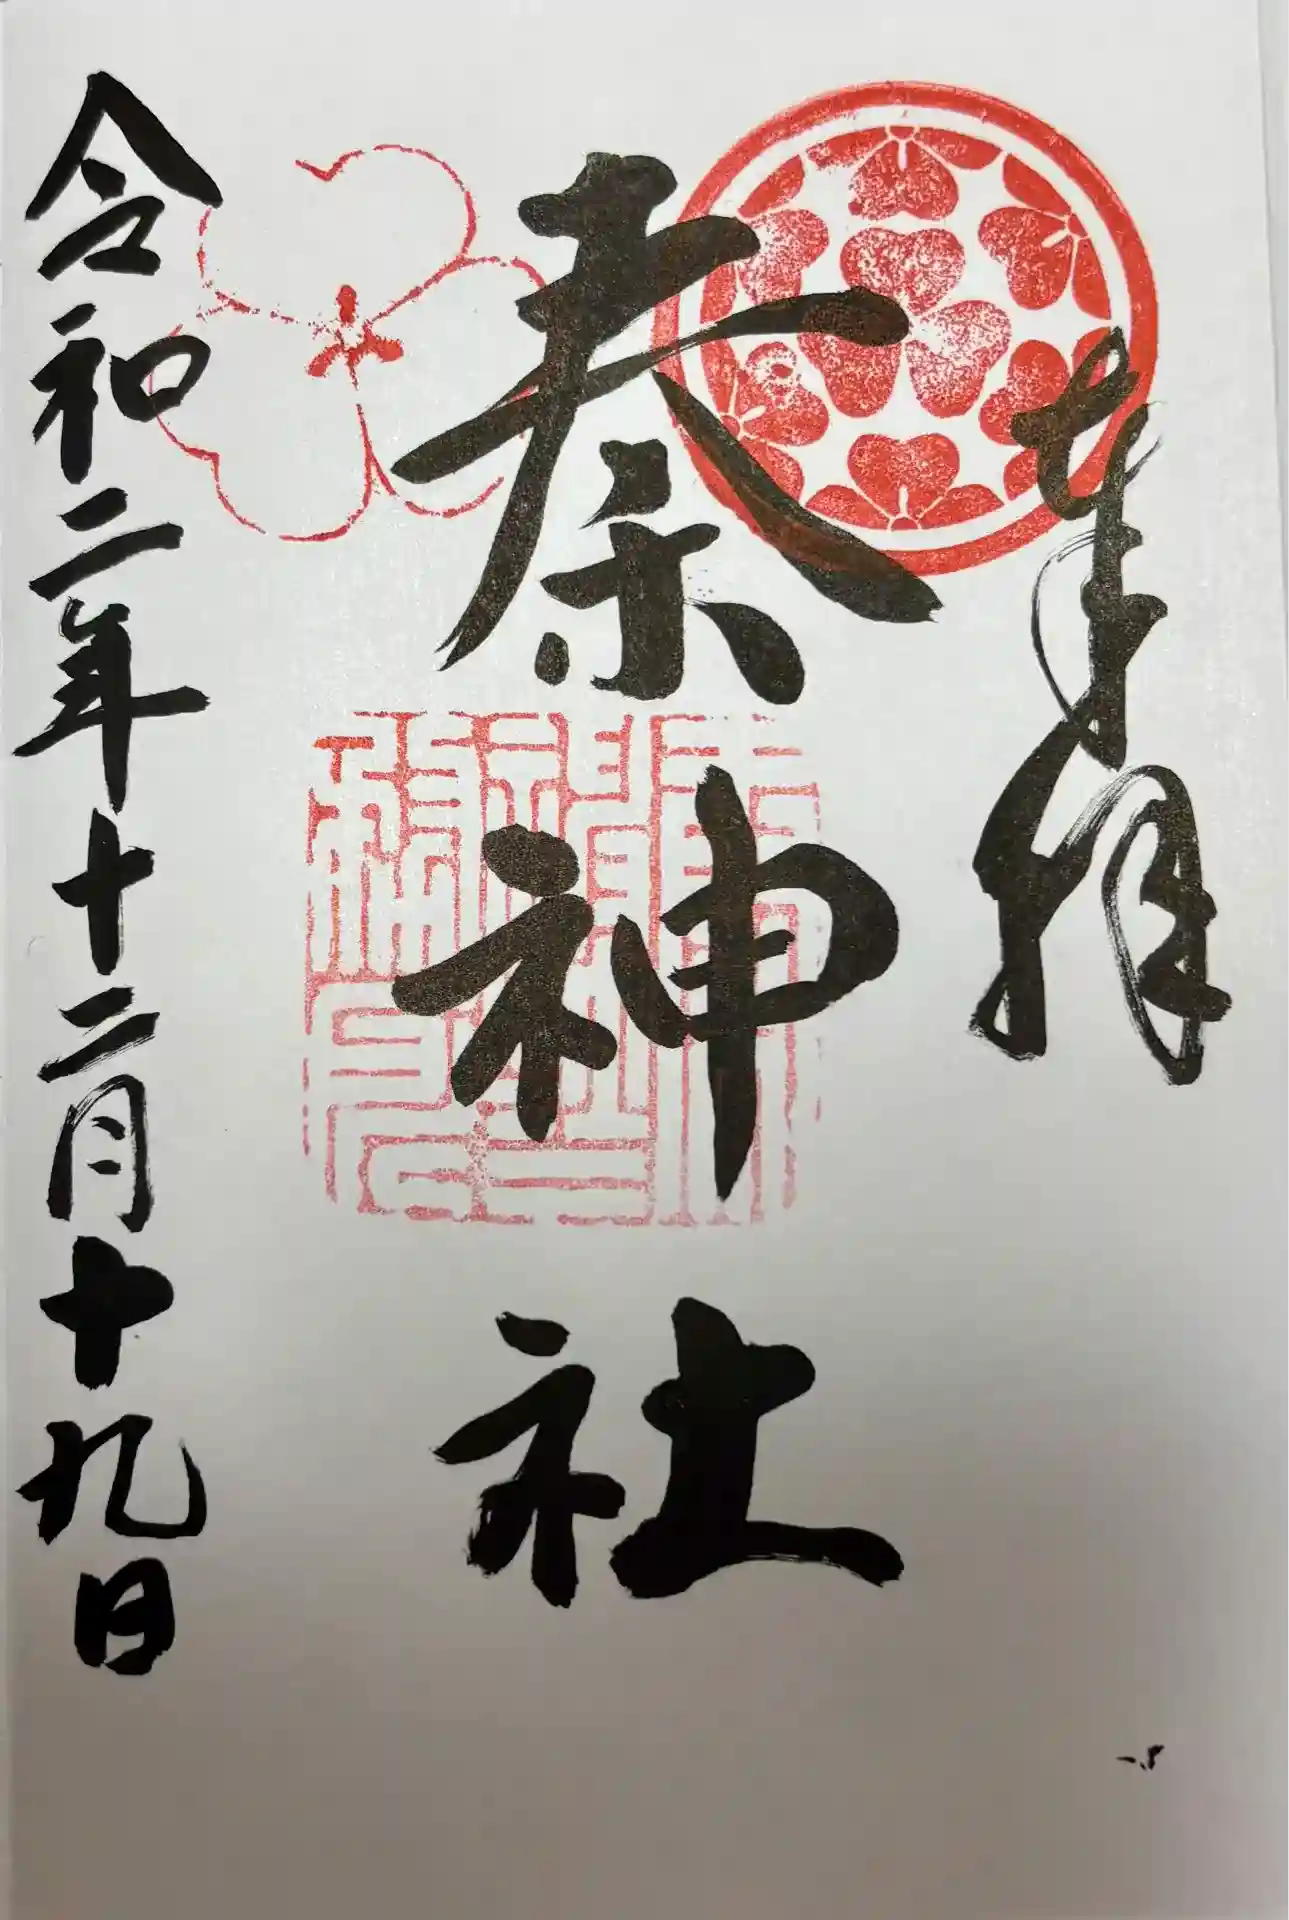 奉拝
秦神社
令和二年十二月十九日